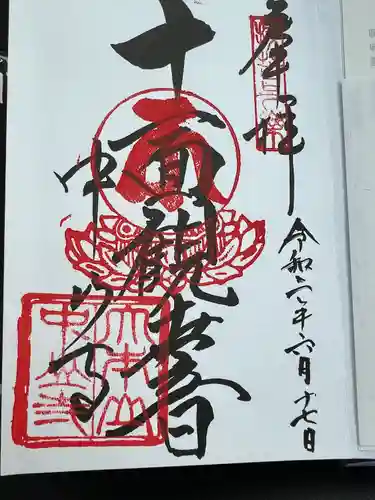 奉拝
令和六年六月十七日
十一面観世音
中山寺
大本山
中山寺